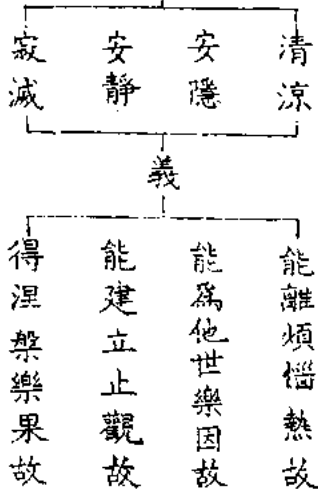 清涼
安隱
安靜
寂滅
義
能離煩惱熱故
能為他世樂因故
能建立止觀故
得涅槃樂果故